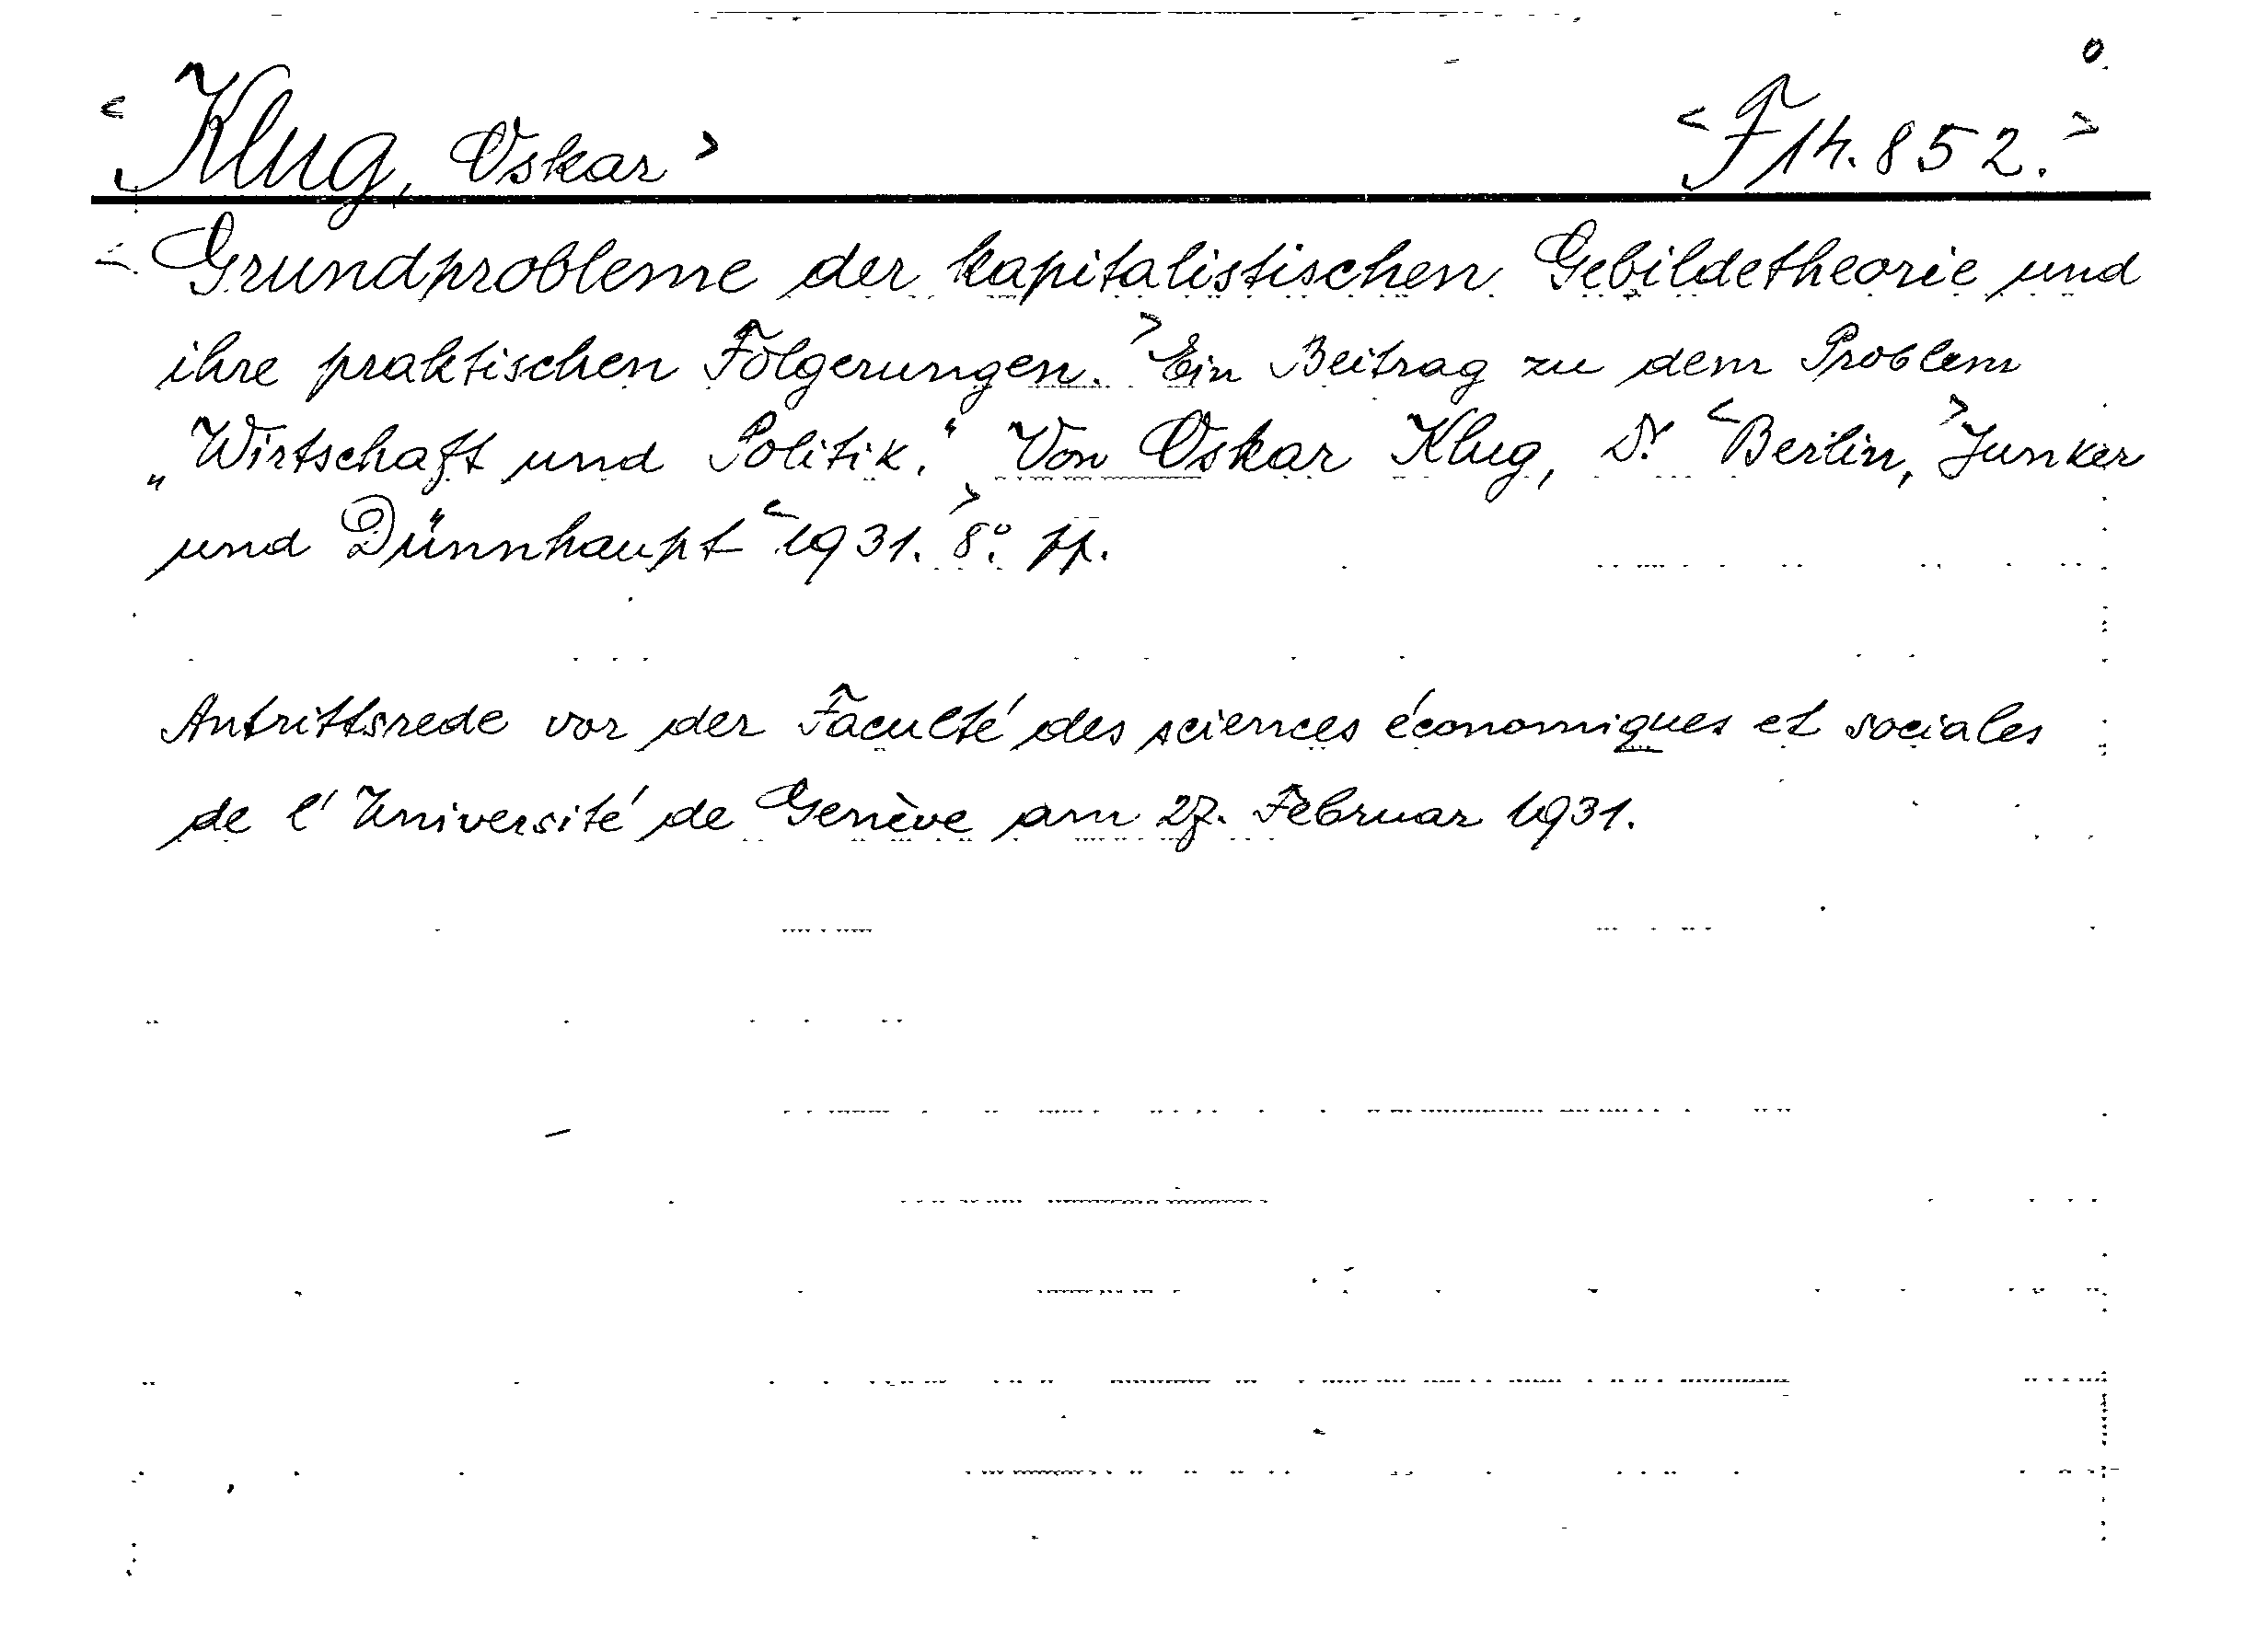 <Klug, Oskar> <F 14.852.>
<Grundprobleme der kapitalistischen Gebildetheorie und
ihre praktischen Folgerungen.> Ein Beitrag zu dem Problem
„Wirtschaft und Politik.“ Von Oskar Klug, Dr. <Berlin,> Junker
und Dünnhaupt <1931.> 8°.
Antrittsrede vor der Faculté des sciences économiques et sociales
de l'Université de Genève am 27. Februar 1931.